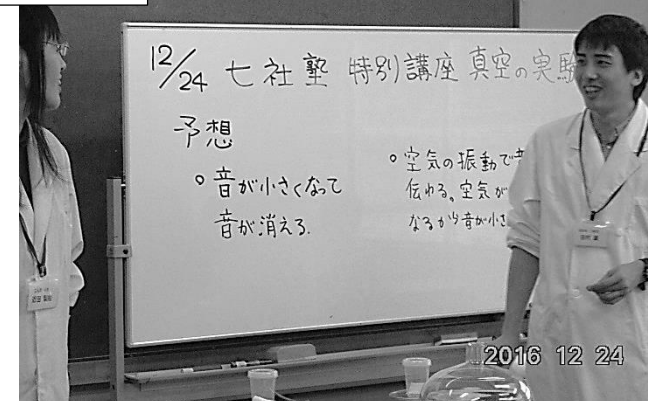 12/24 七社塾 特別講座 真空の実験
予想
○音が小さくなって
音が消える.
○空気の振動で音
伝わる。空気が
なるから音が小さ
2016 12 24